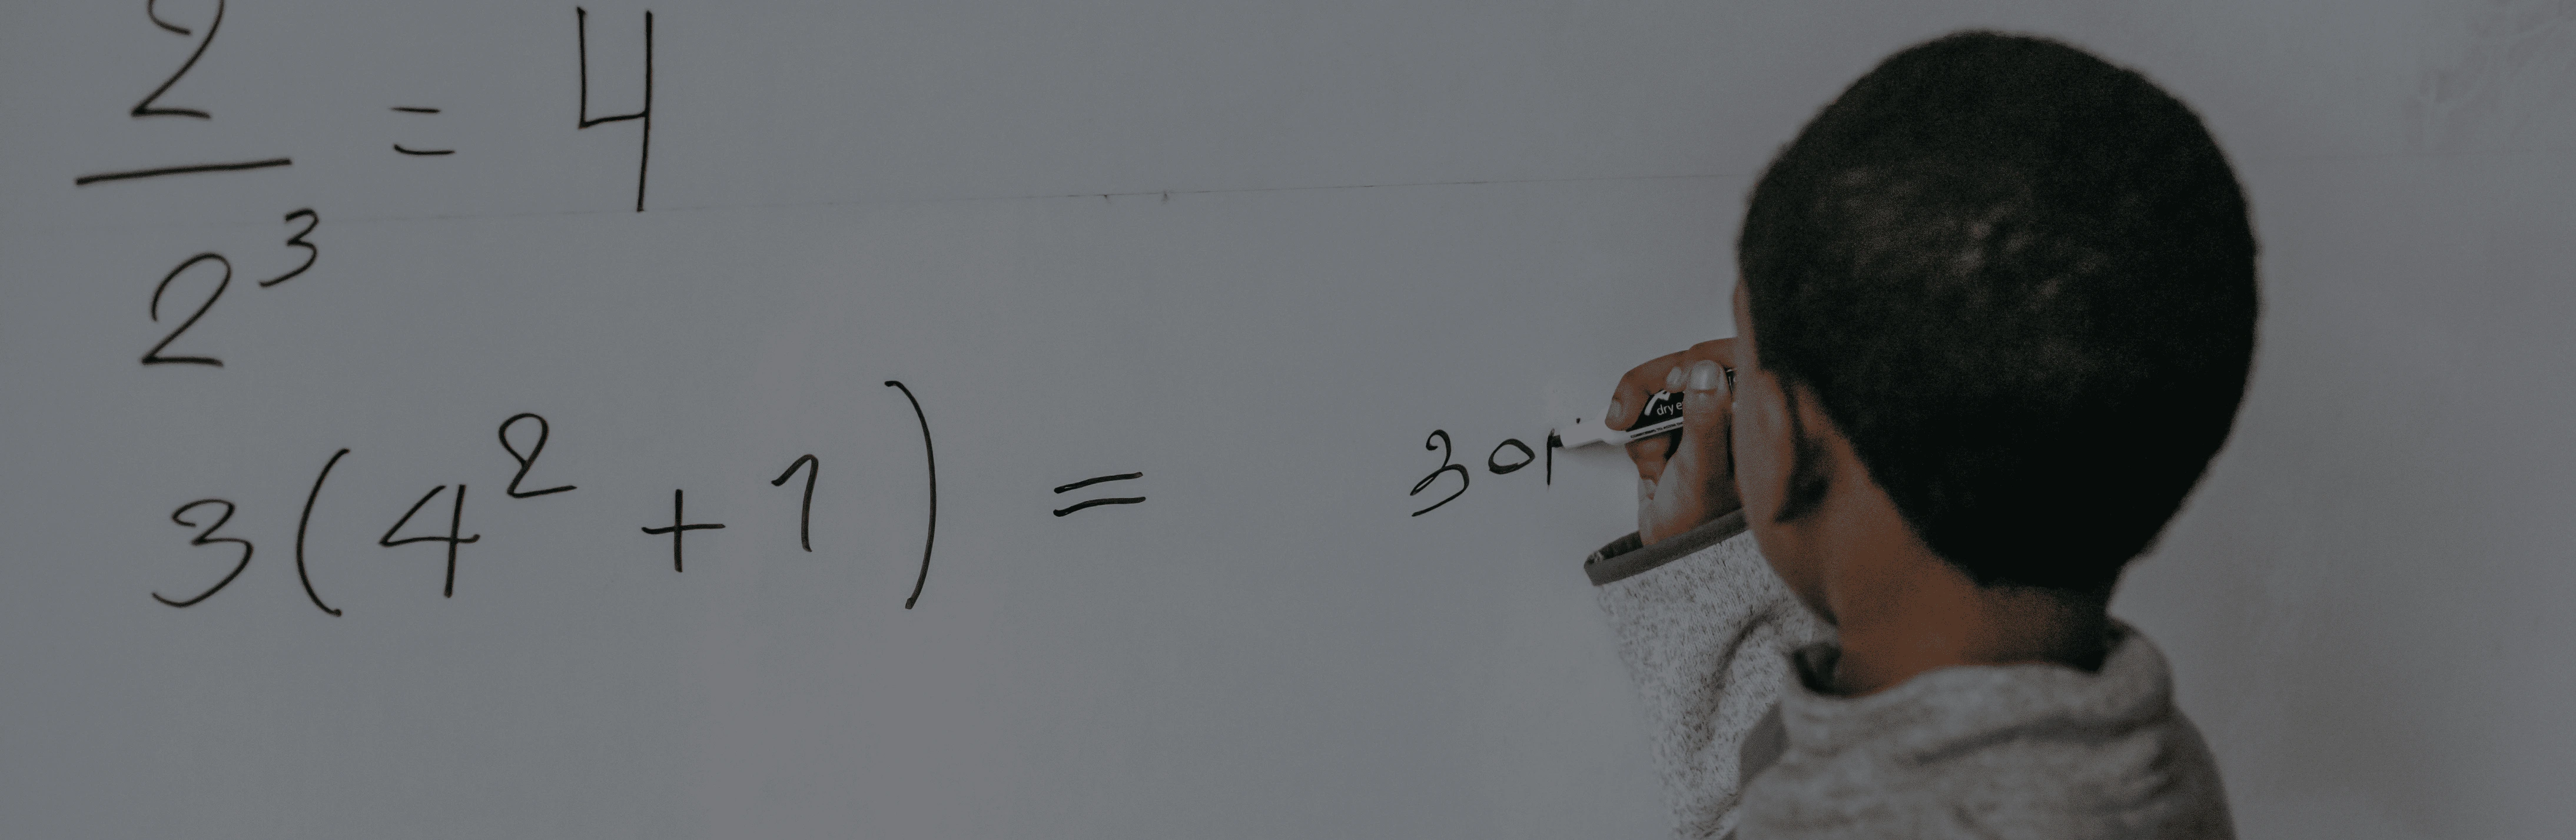 2
— = 4
2³
3(4² + 1) = 301
dry e